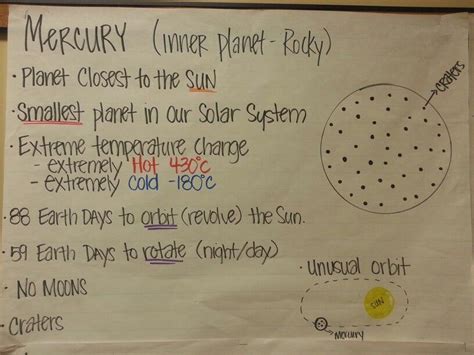 MERCURY (inner planet - Rocky)
· Planet Closest to the SUN
· Smallest planet in our Solar System
· Extreme temperature change
- extremely Hot 430°c
- extremely Cold -180°c
· 88 Earth DAYS to orbit (revolve) the Sun.
· 59 Earth DAYS to rotate (night/day)
· NO MOONS
· Craters
craters
· Unusual orbit
SUN
mercury